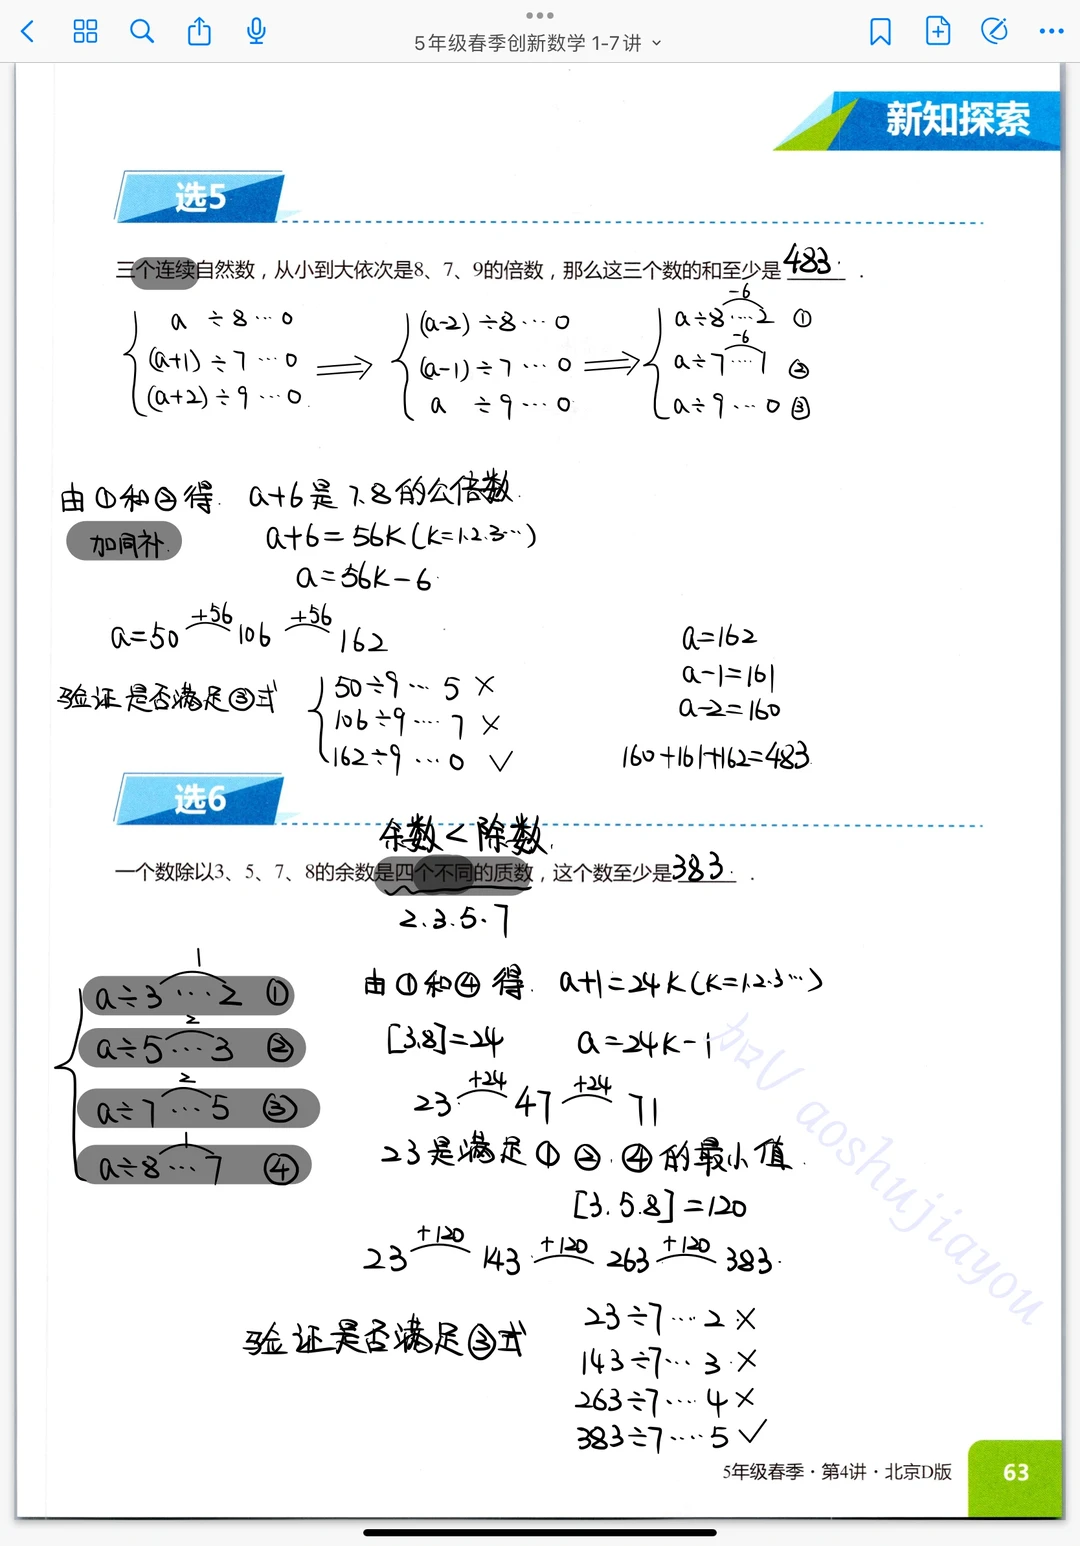 5年级春季创新数学 1-7讲
新知探索
选5
三个连续自然数，从小到大依次是8、7、9的倍数，那么这三个数的和至少是 483 .
a ÷8…0
(a+1)÷7…0
(a+2)÷9…0
(a-2)÷8…0
(a-1)÷7…0
a ÷9…0
-6
a÷8…2 ①
-6
a÷7…1 ②
a÷9…0 ③
由①和②得. a+6是7.8的公倍数.
加同补.
a+6=56K(K=1.2.3…)
a=56K-6
+56 +56
a=50 106 162
验证是否满足③式
50÷9…5 ×
106÷9…7 ×
162÷9…0 ✓
a=162
a-1=161
a-2=160
160+161+162=483
选6
余数<除数.
一个数除以3、5、7、8的余数是四个不同的质数，这个数至少是 383 .
2.3.5.7
1
a÷3…2 ①
2
a÷5…3 ②
2
a÷7…5 ③
1
a÷8…7 ④
由①和④得. a+1=24K(K=1.2.3…)
[3.8]=24 a=24K-1
+24 +24
23 47 71
23是满足①②.④的最小值.
[3.5.8]=120
+120 +120 +120
23 143 263 383.
验证是否满足③式
23÷7…2 ×
143÷7…3 ×
263÷7…4 ×
383÷7…5 ✓
加V aoshujiayou
5年级春季·第4讲·北京D版
63